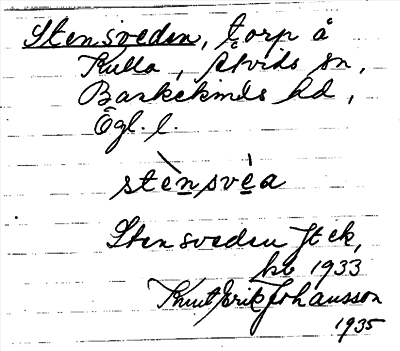 Stensveden, torp å
Kulla, Åtvids sn,
Bankekinds hd,
Ögl. l.
stènsvèa
Stensveden Jt ek,
kb 1933
Knut Erik Johansson
1935